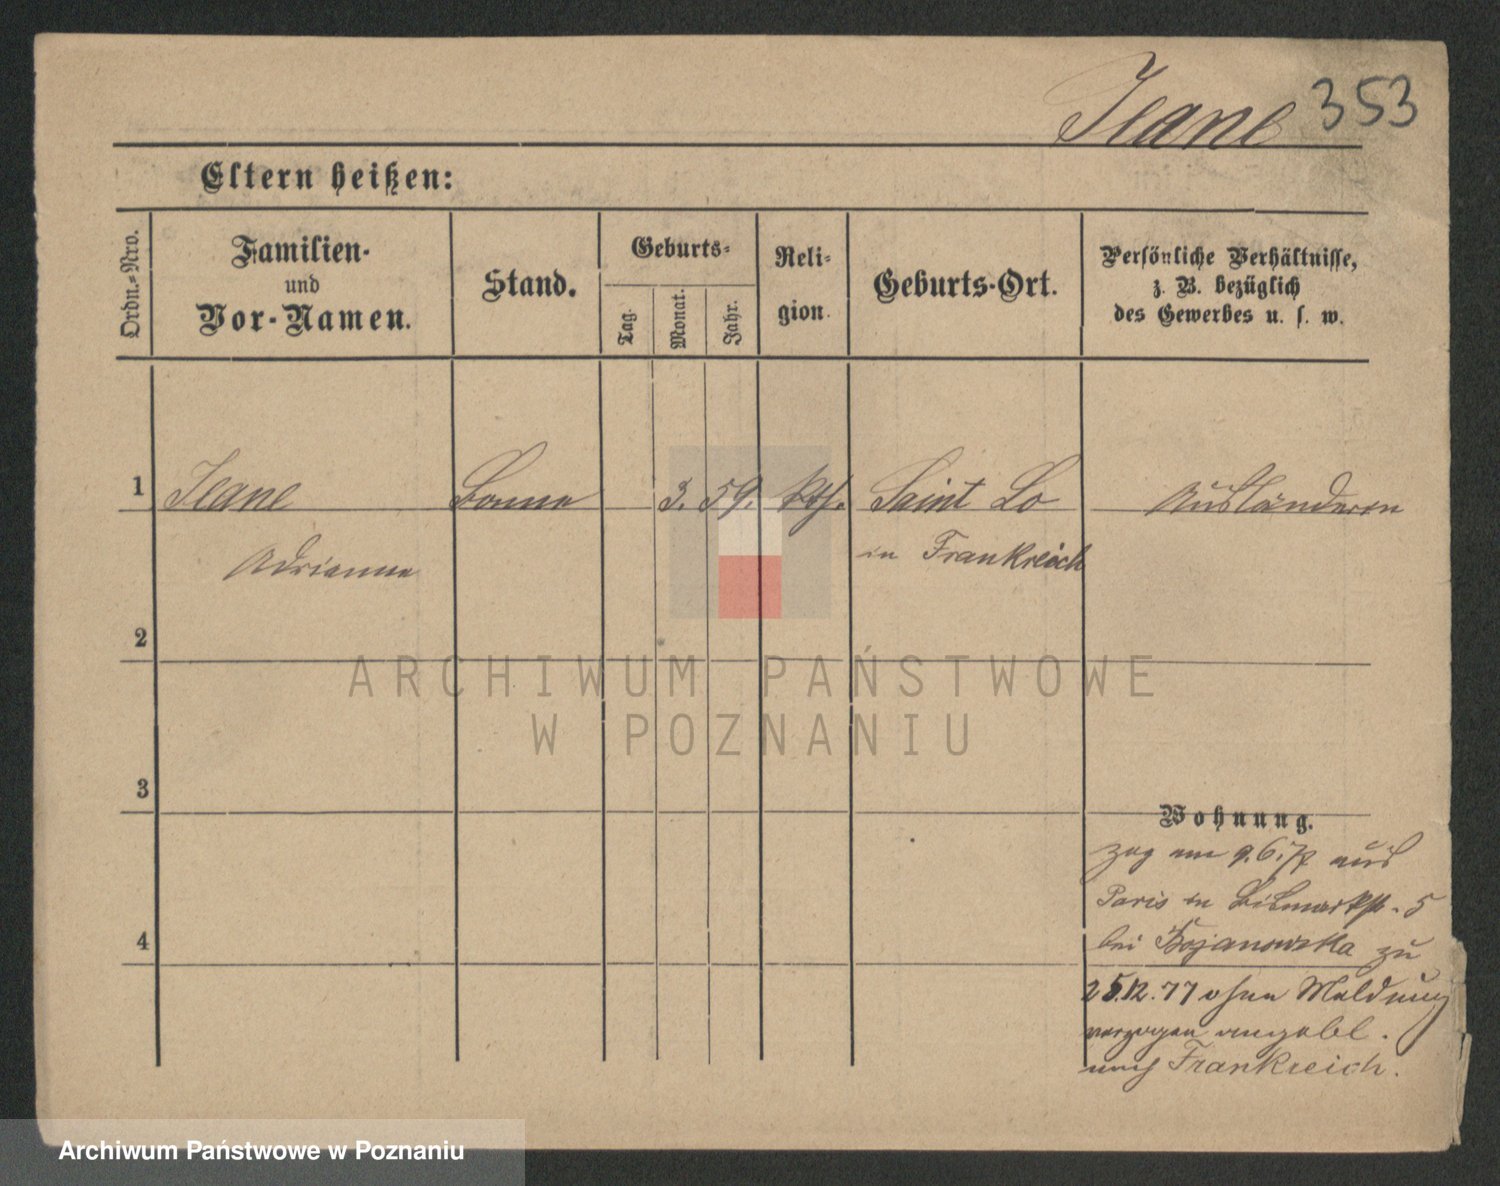 Jeane 353
Eltern heißen:
Ordn.-Nro.
Familien-
und
Vor-Namen.
Stand.
Geburts-
Tag.
Monat.
Jahr.
Reli-
gion.
Geburts-Ort.
Persönliche Verhältnisse,
z. B. bezüglich
des Gewerbes u. s. w.
1 Jeane Bonne 3. 59. kth. Saint Lo Ausländerin
Adrianne in Frankreich
2
ARCHIWUM PAŃSTWOWE
W POZNANIU
3
Wohnung.
zog am 9.6.77 aus
Paris in Bismarkstr. 5
4 bei Bojanowska zu
25.12.77 ohne Meldung
verzogen angebl.
nach Frankreich.
Archiwum Państwowe w Poznaniu